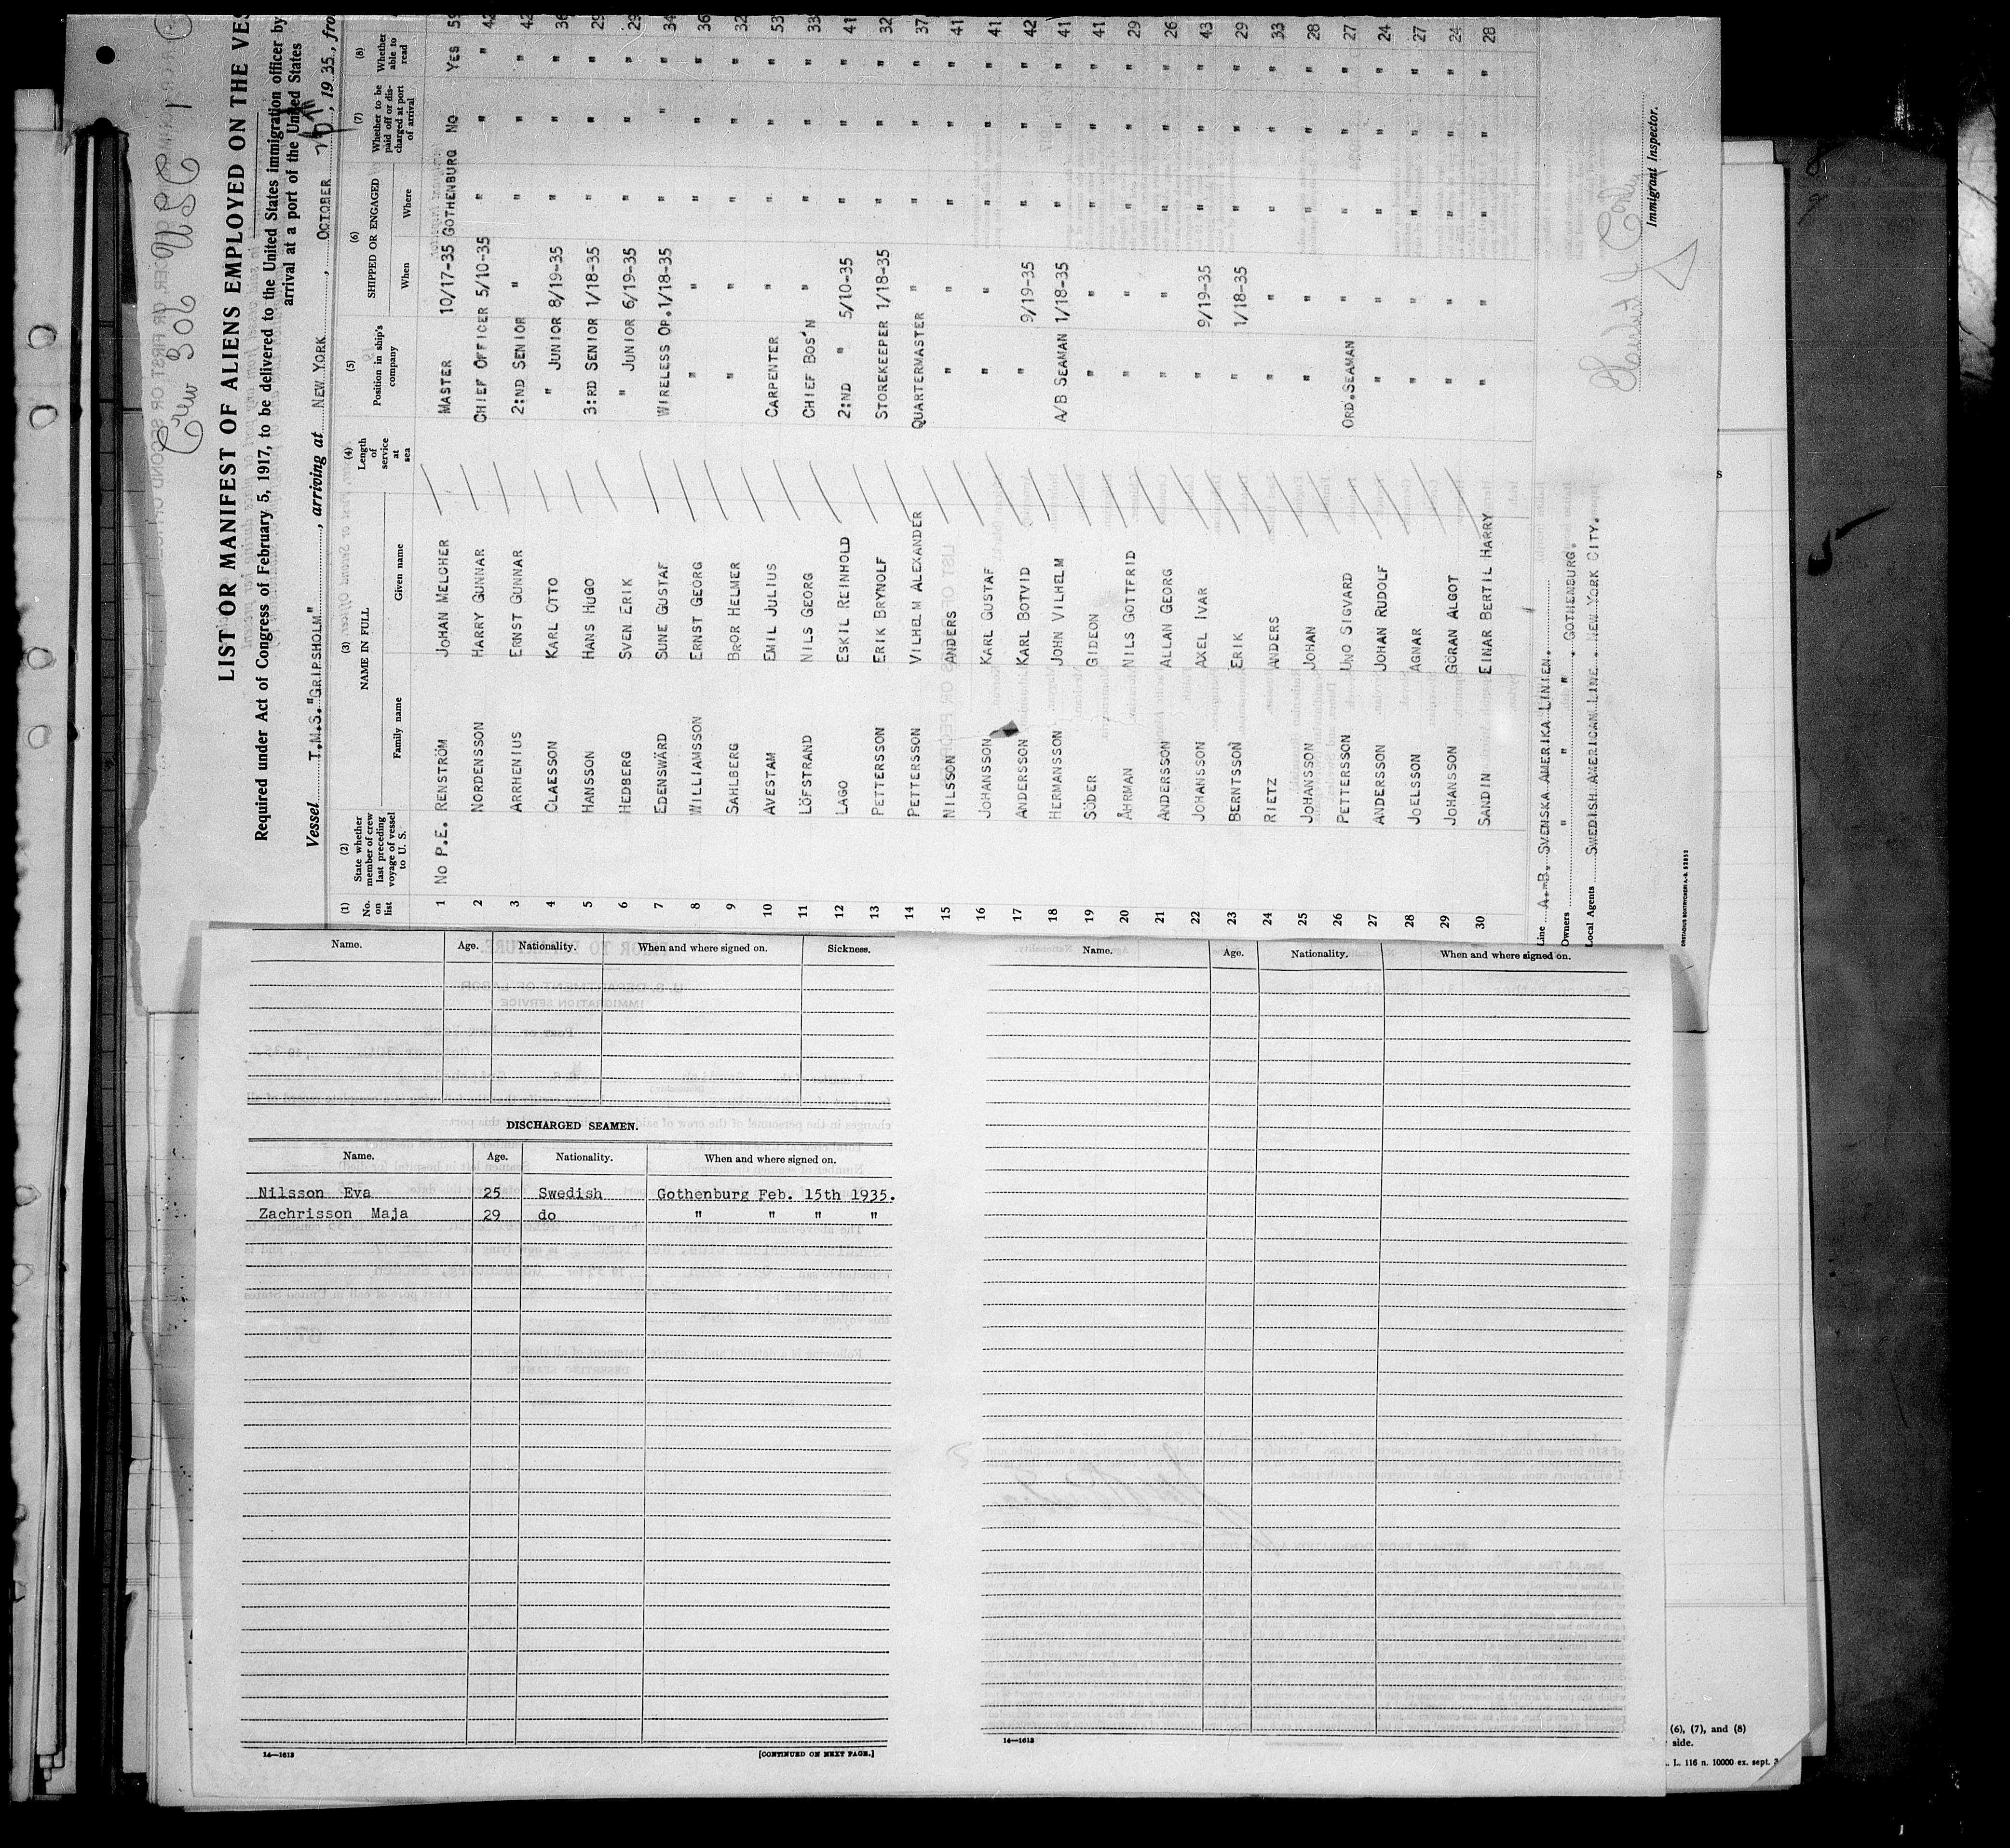 Crew 306 USC 1
LIST OR MANIFEST OF ALIENS EMPLOYED ON THE VES
Required under Act of Congress of February 5, 1917, to be delivered to the United States immigration officer by
arrival at a port of the United States
Vessel T.M.S. "GRIPSHOLM", arriving at NEW YORK, OCTOBER , 19 35, fro
(1) No. on list (2) State whether member of crew last preceding voyage of vessel to U. S. (3) NAME IN FULL Family name Given name (4) Length of service at sea (5) Position in ship's company (6) SHIPPED OR ENGAGED When Where (7) Whether to be paid off or discharged at port of arrival (8) Whether able to read
1 NO P.E. RENSTRÖM JOHAN MELCHER MASTER 10/17-35 GOTHENBURG NO YES 59
2 NORDENSSON HARRY GUNNAR CHIEF OFFICER 5/10-35 " " " 42
3 ARRHENIUS ERNST GUNNAR 2:ND SENIOR " " " " 42
4 CLAESSON KARL OTTO " JUNIOR 8/19-35 " " " 36
5 HANSSON HANS HUGO 3:RD SENIOR 1/18-35 " " " 29
6 HEDBERG SVEN ERIK " JUNIOR 6/19-35 " " " 29
7 EDENSWÄRD SUNE GUSTAF WIRELESS OP. 1/18-35 " " " 34
8 WILLIAMSSON ERNST GEORG " " " " " 36
9 SAHLBERG BROR HELMER " " " " " 32
10 AVESTAM EMIL JULIUS CARPENTER " " " " 53
11 LÖFSTRAND NILS GEORG CHIEF BOS'N " " " " 33
12 LAGO ESKIL REINHOLD 2:ND " 5/10-35 " " " 41
13 PETTERSSON ERIK BRYNOLF STOREKEEPER 1/18-35 " " " 32
14 PETTERSSON VILHELM ALEXANDER QUARTERMASTER " " " " 37
15 NILSSON ANDERS " " " " " 41
16 JOHANSSON KARL GUSTAF " " " " " 41
17 ANDERSSON KARL BOTVID " 9/19-35 " " " 42
18 HERMANSSON JOHN VILHELM A/B SEAMAN 1/18-35 " " " 41
19 SÖDER GIDEON " " " " " 41
20 ÅHRMAN NILS GOTTFRID " " " " " 29
21 ANDERSSON ALLAN GEORG " " " " " 26
22 JOHANSSON AXEL IVAR " 9/19-35 " " " 43
23 BERNTSSON ERIK " 1/18-35 " " " 29
24 RIETZ ANDERS " " " " " 33
25 JOHANSSON JOHAN " " " " " 28
26 PETTERSSON UNO SIGVARD ORD.SEAMAN " " " " 27
27 ANDERSSON JOHAN RUDOLF " " " " " 24
28 JOELSSON AGNAR " " " " " 27
29 JOHANSSON GÖRAN ALGOT " " " " " 24
30 SANDIN EINAR BERTIL HARRY " " " " " 28
Line A.-B. SVENSKA AMERIKA LINIEN.
Owners " " " . GOTHENBURG.
Local Agents SWEDISH AMERICAN LINE . NEW YORK CITY.
Immigrant Inspector.
Name. Age. Nationality. When and where signed on. Sickness.
DISCHARGED SEAMEN.
Name. Age. Nationality. When and where signed on.
Nilsson Eva 25 Swedish Gothenburg Feb. 15th 1935.
Zachrisson Maja 29 do " " " "
14—1613 [CONTINUED ON NEXT PAGE.]
Name. Age. Nationality. When and where signed on.
14—1613
(6), (7), and (8)
side.
L. 116 n. 10000 ex. sept. 3